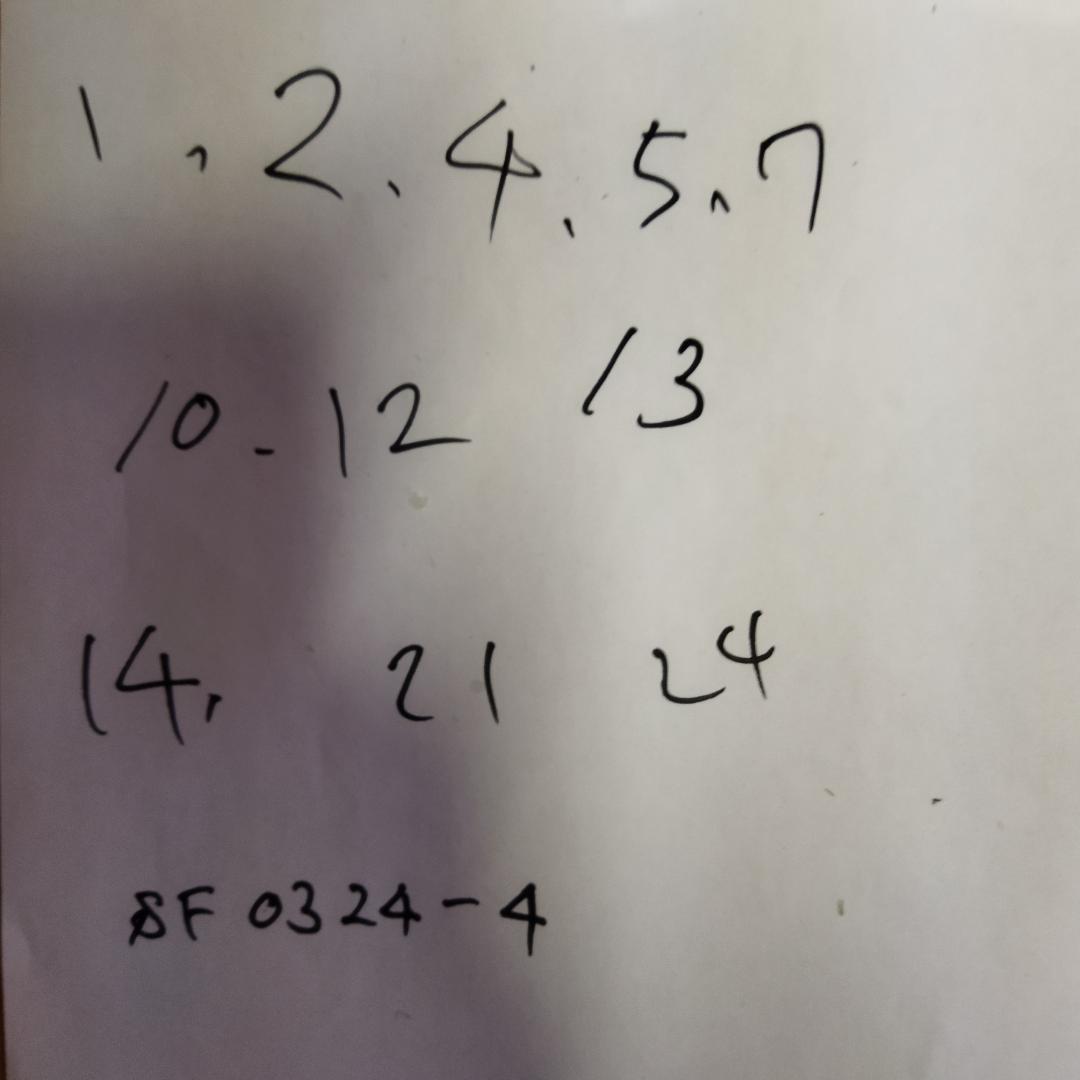 1, 2, 4, 5, 7
10-12 13
14, 21 24
SF 0324-4